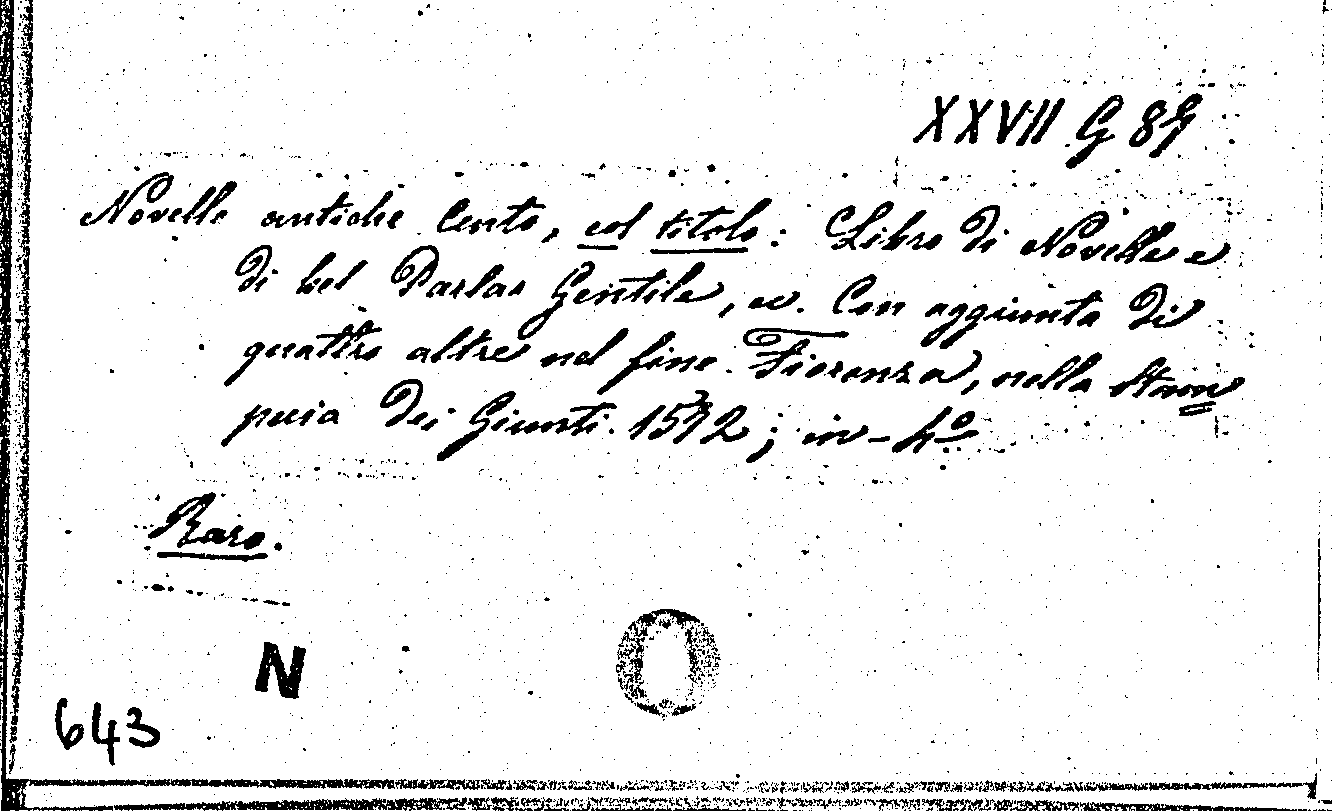 XXVII G 89
Novelle antiche Cento, col titolo: Libro di Novelle e
di bel Parlar Gentile, ec. Con aggiunta di
quattro altre nel fine. Fiorenza, nella Stam=
peria dei Giunti. 1572; in-4º
Raro.
N
643